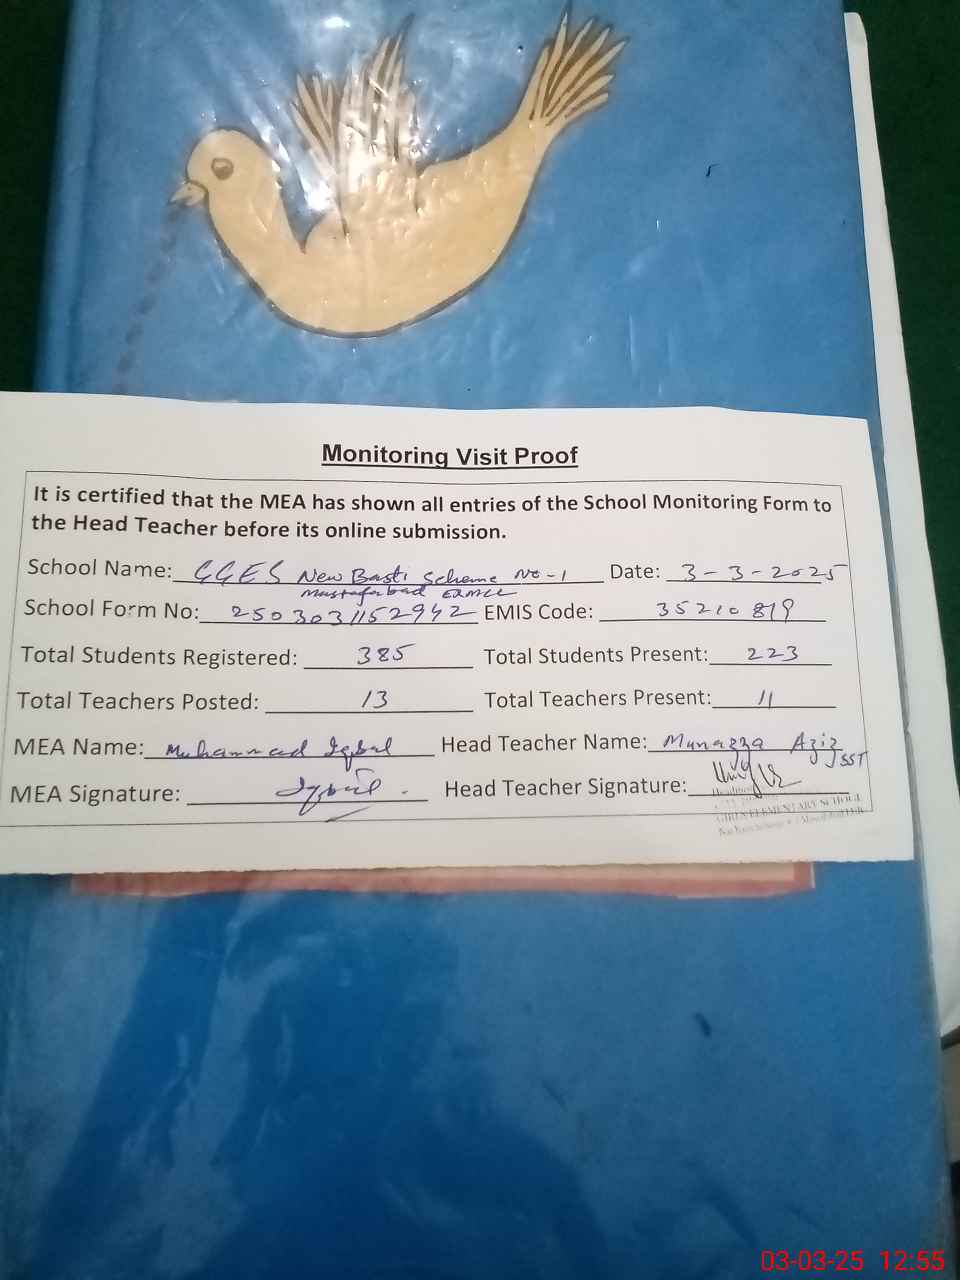 Monitoring Visit Proof
It is certified that the MEA has shown all entries of the School Monitoring Form to
the Head Teacher before its online submission.
School Name: GGES New Basti Scheme No-1 Date: 3-3-2025
Mustafabad
School Form No: 2503031152942 EMIS Code: 35210819
Total Students Registered: 385 Total Students Present: 223
Total Teachers Posted: 13 Total Teachers Present: 11
MEA Name: Muhammad Iqbal Head Teacher Name: Munazza Aziz
SST
MEA Signature: Iqbal Head Teacher Signature:
GIRLS ELEMENTARY SCHOOL
03-03-25 12:55